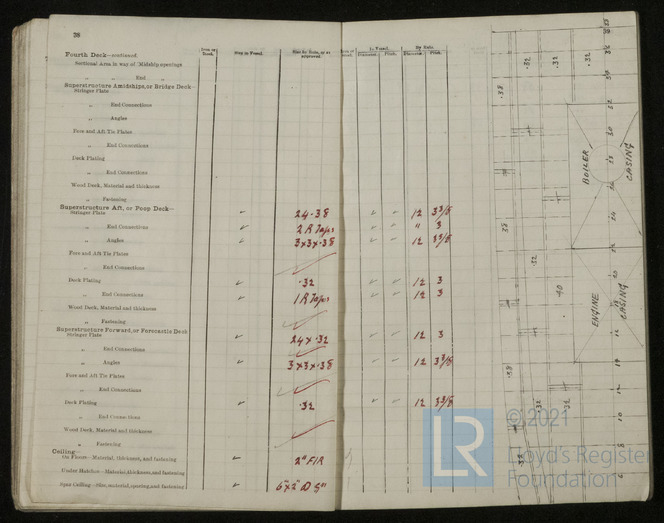 28
Date or Book. Ship in Vessel. Size by Rule, or as approved In Vessel. By Rule.
Diameter. Pitch. Diameter. Pitch.
Fourth Deck—continued.
Sectional Area in way of Midship openings
„ „ End „
Superstructure Amidships, or Bridge Deck—
Stringer Plate
„ End Connections
„ Angles
Fore and Aft Tie Plates
„ End Connections
Deck Plating
„ End Connections
Wood Deck, Material and thickness
„ Fastening
Superstructure Aft, or Poop Deck—
Stringer Plate ✓ 24-38 ✓ ✓ 12 3 3/8
„ End Connections ✓ 2 R Taps ✓ ✓ " 3
„ Angles ✓ 3x3x.38 ✓ ✓ 12 3 3/8
Fore and Aft Tie Plates
„ End Connections
Deck Plating ✓ .32 ✓ ✓ 12 3
„ End Connections ✓ 1 R Taps ✓ ✓ 12 3
Wood Deck, Material and thickness
„ Fastening
Superstructure Forward, or Forecastle Deck
Stringer Plate ✓ 24 x .32 ✓ ✓ 12 3
„ End Connections
„ Angles ✓ 3x3x.38 ✓ ✓ 12 3 3/8
Fore and Aft Tie Plates
„ End Connections
Deck Plating ✓ .32 ✓ ✓ 12 3 3/8
„ End Connections
Wood Deck, Material and thickness
„ Fastening
Ceiling—
On Floors—Material, thickness, and fastening ✓ 2" FIR
Under Hatches—Material, thickness, and fastening
Spar Ceiling—Size, material, spacing, and fastening ✓ 6"x2"
BOILER CASING
ENGINE CASING
.38
.32
.32
.32
.38
.38
.32
.40
.38
.32
30
24
20
14
12
10
8
6
©2021
LR
Lloyd's Register
Foundation